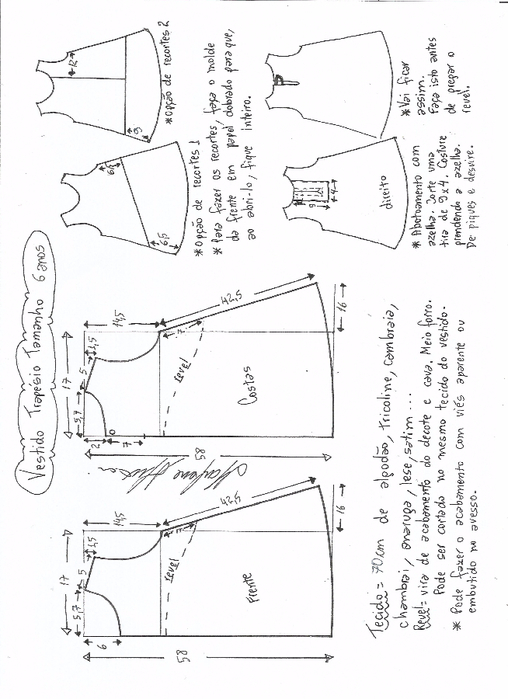 Vestido Trapésio Tamanho 6 anos
17
5,7
5
1,5
14,5
2
7
58
revel
Costas
42,5
16
17
5,7
5
1,5
14,5
6
58
revel
Frente
42,5
16
12
6
* opção de recortes 2
* opção de recortes 1
* Para fazer os recortes, faça o molde
da frente em papel dobrado para que,
ao abri-lo, fique inteiro.
direito
9
4
* Abotoamento com
azelha. Corte uma
tira de 9x4. Costure
prendendo a azelha.
Dê piques e desvire.
* Vai ficar
assim.
Faça isto antes
de pregar o
revel.
Tecido = 70cm de algodão, tricoline, cambraia,
chambrai, anarruga, lese, satim ...
Revel = vira de acabamento do decote e cava. Meio forro.
Pode ser cortada no mesmo tecido do vestido.
* Pode fazer o acabamento com viés aparente ou
embutido no avesso.